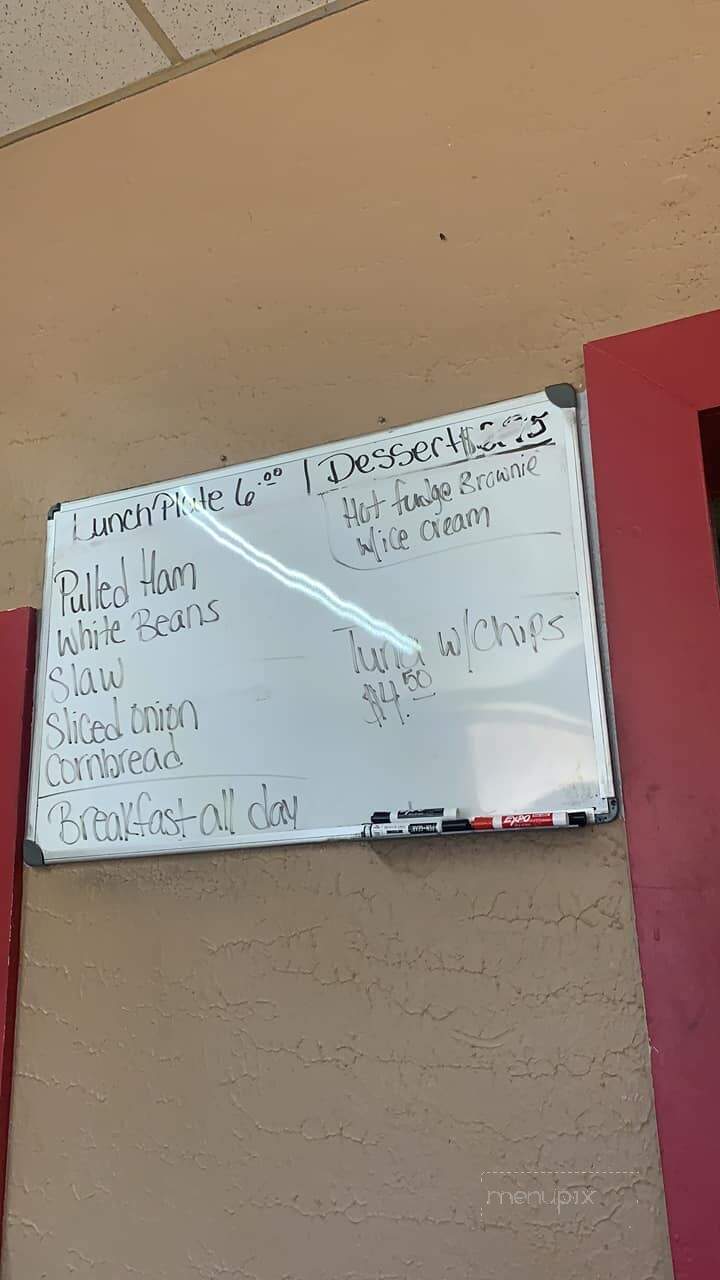 Lunch Plate 6.00 | Dessert
Pulled Ham
White Beans
Slaw
Sliced onion
Cornbread
Breakfast all day
Hot fudge Brownie
w/ice cream
Tuna w/Chips
$4.50
EXPO
menupix